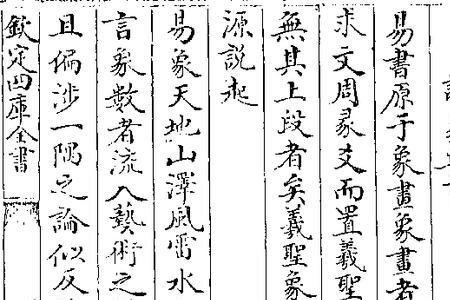 易書原于象畫象畫者
求文周彖爻而置羲聖
無其上段者矣羲聖象
源説起
易象天地山澤風雷水
言象數者流入藝術之
且偏涉一隅之論似反
欽定四庫全書